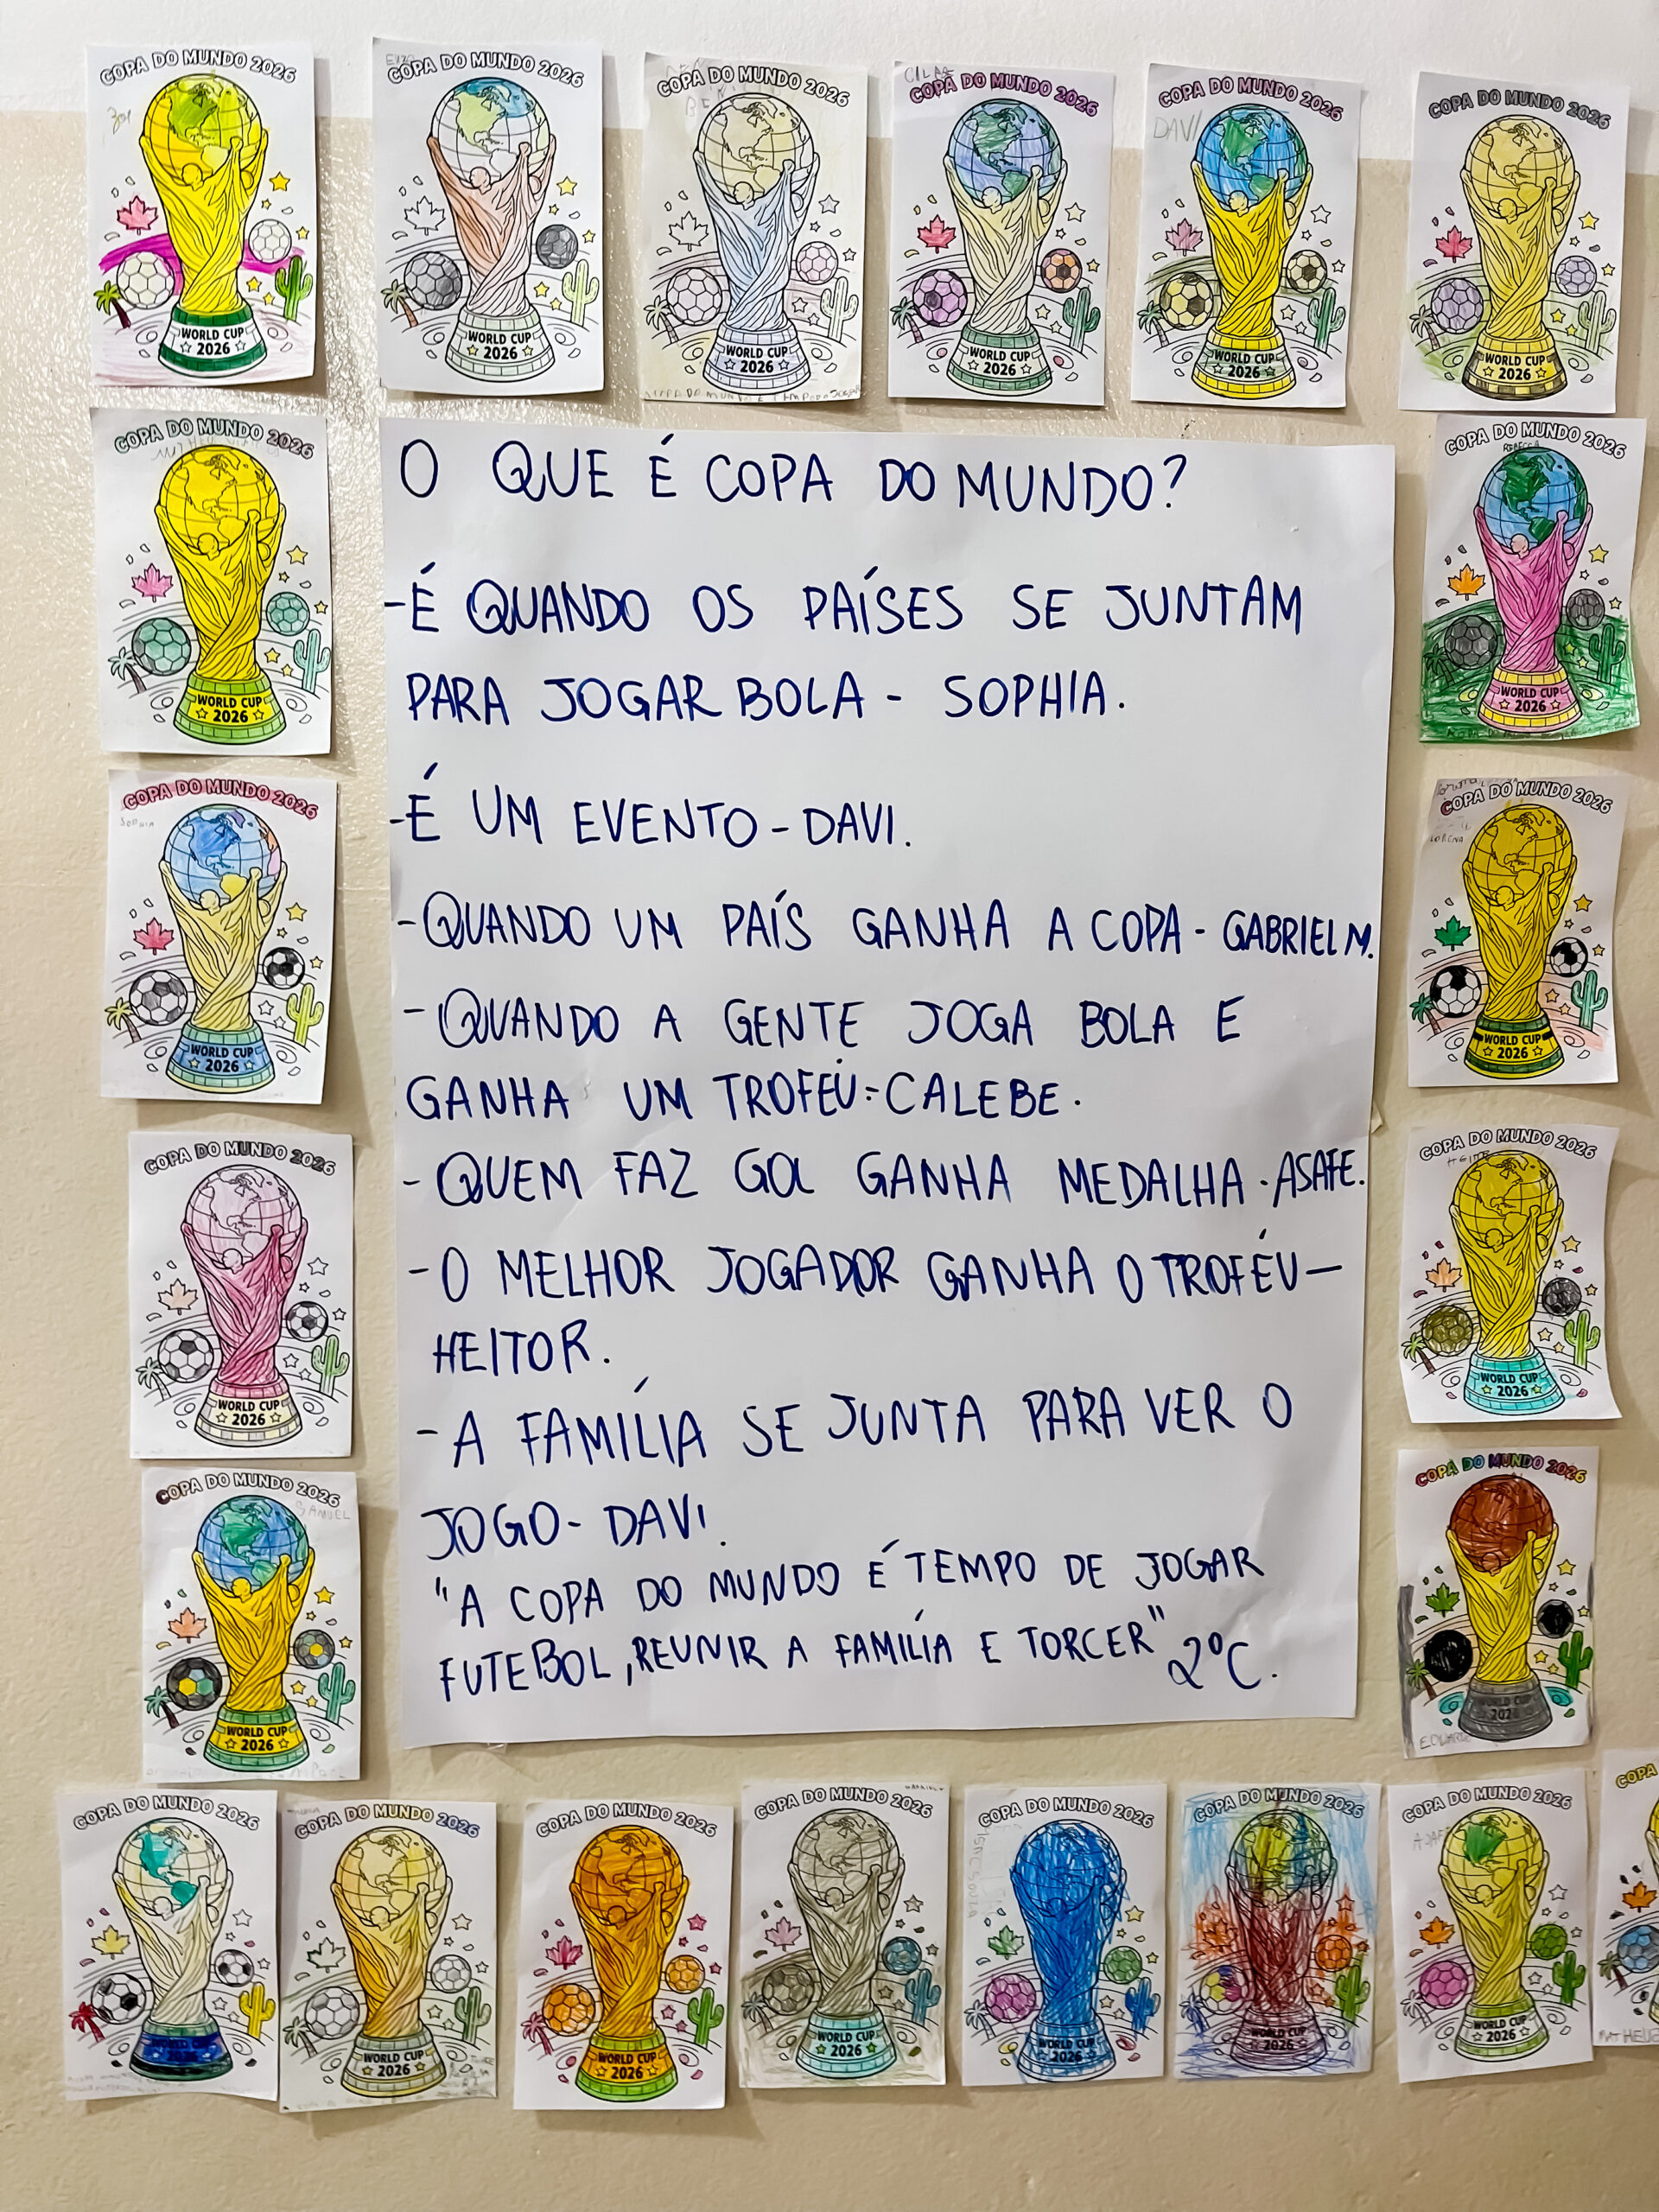 COPA DO MUNDO 2026
WORLD CUP
2026
COPA DO MUNDO 2026
WORLD CUP
2026
COPA DO MUNDO 2026
WORLD CUP
2026
COPA DO MUNDO 2026
WORLD CUP
2026
DAVI
COPA DO MUNDO 2026
WORLD CUP
2026
COPA DO MUNDO 2026
WORLD CUP
2026
O QUE É COPA DO MUNDO?
-É QUANDO OS PAÍSES SE JUNTAM
PARA JOGAR BOLA - SOPHIA.
-É UM EVENTO - DAVI.
-QUANDO UM PAÍS GANHA A COPA - GABRIEL M.
-QUANDO A GENTE JOGA BOLA E
GANHA UM TROFÉU - CALEBE.
-QUEM FAZ GOL GANHA MEDALHA - ASAFE.
-O MELHOR JOGADOR GANHA O TROFÉU -
HEITOR.
-A FAMÍLIA SE JUNTA PARA VER O
JOGO - DAVI.
"A COPA DO MUNDO É TEMPO DE JOGAR
FUTEBOL, REUNIR A FAMÍLIA E TORCER" 2ºC.
COPA DO MUNDO 2026
WORLD CUP
2026
COPA DO MUNDO 2026
SOPHIA
WORLD CUP
2026
COPA DO MUNDO 2026
WORLD CUP
2026
COPA DO MUNDO 2026
SAMUEL
WORLD CUP
2026
COPA DO MUNDO 2026
REBECCA
WORLD CUP
2026
COPA DO MUNDO 2026
LORENA
WORLD CUP
2026
COPA DO MUNDO 2026
HEITOR
WORLD CUP
2026
COPA DO MUNDO 2026
WORLD CUP
2026
COPA DO MUNDO 2026
WORLD CUP
2026
COPA DO MUNDO 2026
WORLD CUP
2026
COPA DO MUNDO 2026
WORLD CUP
2026
COPA DO MUNDO 2026
WORLD CUP
2026
COPA DO MUNDO 2026
WORLD CUP
2026
COPA DO MUNDO 2026
WORLD CUP
2026
COPA DO MUNDO 2026
ASAFE
WORLD CUP
2026
COPA